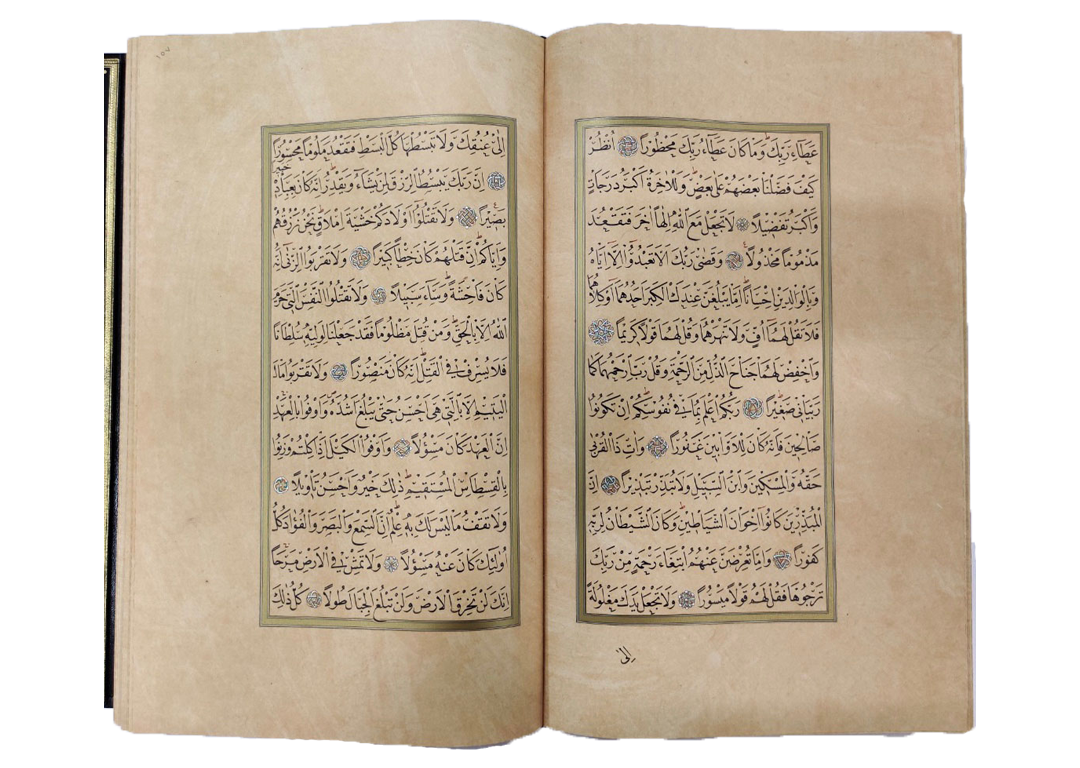 عَطَآءِ رَبِّكَ وَمَا كَانَ عَطَآءُ رَبِّكَ مَحْظُورًا اُنْظُرْ
كَيْفَ فَضَّلْنَا بَعْضَهُمْ عَلٰى بَعْضٍ وَلَلْاٰخِرَةُ اَكْبَرُ دَرَجَاتٍ
وَاَكْبَرُ تَفْضِيلًا لَا تَجْعَلْ مَعَ اللّٰهِ اِلٰهًا اٰخَرَ فَتَقْعُدَ
مَذْمُومًا مَخْذُولًا وَقَضٰى رَبُّكَ اَلَّا تَعْبُدُٓوا اِلَّٓا اِيَّاهُ
وَبِالْوَالِدَيْنِ اِحْسَانًا اِمَّا يَبْلُغَنَّ عِنْدَكَ الْكِبَرَ اَحَدُهُمَٓا اَوْ كِلَاهُمَا
فَلَا تَقُلْ لَهُمَٓا اُفٍّ وَلَا تَنْهَرْهُمَا وَقُلْ لَهُمَا قَوْلًا كَرِيمًا
وَاخْفِضْ لَهُمَا جَنَاحَ الذُّلِّ مِنَ الرَّحْمَةِ وَقُلْ رَبِّ ارْحَمْهُمَا كَمَا
رَبَّيَانِي صَغِيرًا رَبُّكُمْ اَعْلَمُ بِمَا فِي نُفُوسِكُمْ اِنْ تَكُونُوا
صَالِحِينَ فَاِنَّهُ كَانَ لِلْاَوَّابِينَ غَفُورًا وَاٰتِ ذَا الْقُرْبٰى
حَقَّهُ وَالْمِسْكِينَ وَابْنَ السَّبِيلِ وَلَا تُبَذِّرْ تَبْذِيرًا اِنَّ
الْمُبَذِّرِينَ كَانُٓوا اِخْوَانَ الشَّيَاطِينِ وَكَانَ الشَّيْطَانُ لِرَبِّهِ
كَفُورًا وَاِمَّا تُعْرِضَنَّ عَنْهُمُ ابْتِغَٓاءَ رَحْمَةٍ مِنْ رَبِّكَ
تَرْجُوهَا فَقُلْ لَهُمْ قَوْلًا مَيْسُورًا وَلَا تَجْعَلْ يَدَكَ مَغْلُولَةً
اِلٰى
اِلٰى عُنُقِكَ وَلَا تَبْسُطْهَا كُلَّ الْبَسْطِ فَتَقْعُدَ مَلُومًا مَحْسُورًا
اِنَّ رَبَّكَ يَبْسُطُ الرِّزْقَ لِمَنْ يَشَٓاءُ وَيَقْدِرُ اِنَّهُ كَانَ بِعِبَادِهِ خَبِيرًا
بَصِيرًا وَلَا تَقْتُلُٓوا اَوْلَادَكُمْ خَشْيَةَ اِمْلَاقٍ نَحْنُ نَرْزُقُهُمْ
وَاِيَّاكُمْ اِنَّ قَتْلَهُمْ كَانَ خِطْـًٔا كَبِيرًا وَلَا تَقْرَبُوا الزِّنٰٓى اِنَّهُ
كَانَ فَاحِشَةً وَسَٓاءَ سَبِيلًا وَلَا تَقْتُلُوا النَّفْسَ الَّتِي حَرَّمَ
اللّٰهُ اِلَّا بِالْحَقِّ وَمَنْ قُتِلَ مَظْلُومًا فَقَدْ جَعَلْنَا لِوَلِيِّهِ سُلْطَانًا
فَلَا يُسْرِفْ فِي الْقَتْلِ اِنَّهُ كَانَ مَنْصُورًا وَلَا تَقْرَبُوا مَالَ
الْيَتِيمِ اِلَّا بِالَّتِي هِيَ اَحْسَنُ حَتّٰى يَبْلُغَ اَشُدَّهُ وَاَوْفُوا بِالْعَهْدِ
اِنَّ الْعَهْدَ كَانَ مَسْؤُلًا وَاَوْفُوا الْكَيْلَ اِذَا كِلْتُمْ وَزِنُوا
بِالْقِسْطَاسِ الْمُسْتَقِيمِ ذٰلِكَ خَيْرٌ وَاَحْسَنُ تَأْوِيلًا
وَلَا تَقْفُ مَا لَيْسَ لَكَ بِهِ عِلْمٌ اِنَّ السَّمْعَ وَالْبَصَرَ وَالْفُؤَادَ كُلُّ
اُولٰٓئِكَ كَانَ عَنْهُ مَسْؤُلًا وَلَا تَمْشِ فِي الْاَرْضِ مَرَحًا
اِنَّكَ لَنْ تَخْرِقَ الْاَرْضَ وَلَنْ تَبْلُغَ الْجِبَالَ طُولًا كُلُّ ذٰلِكَ